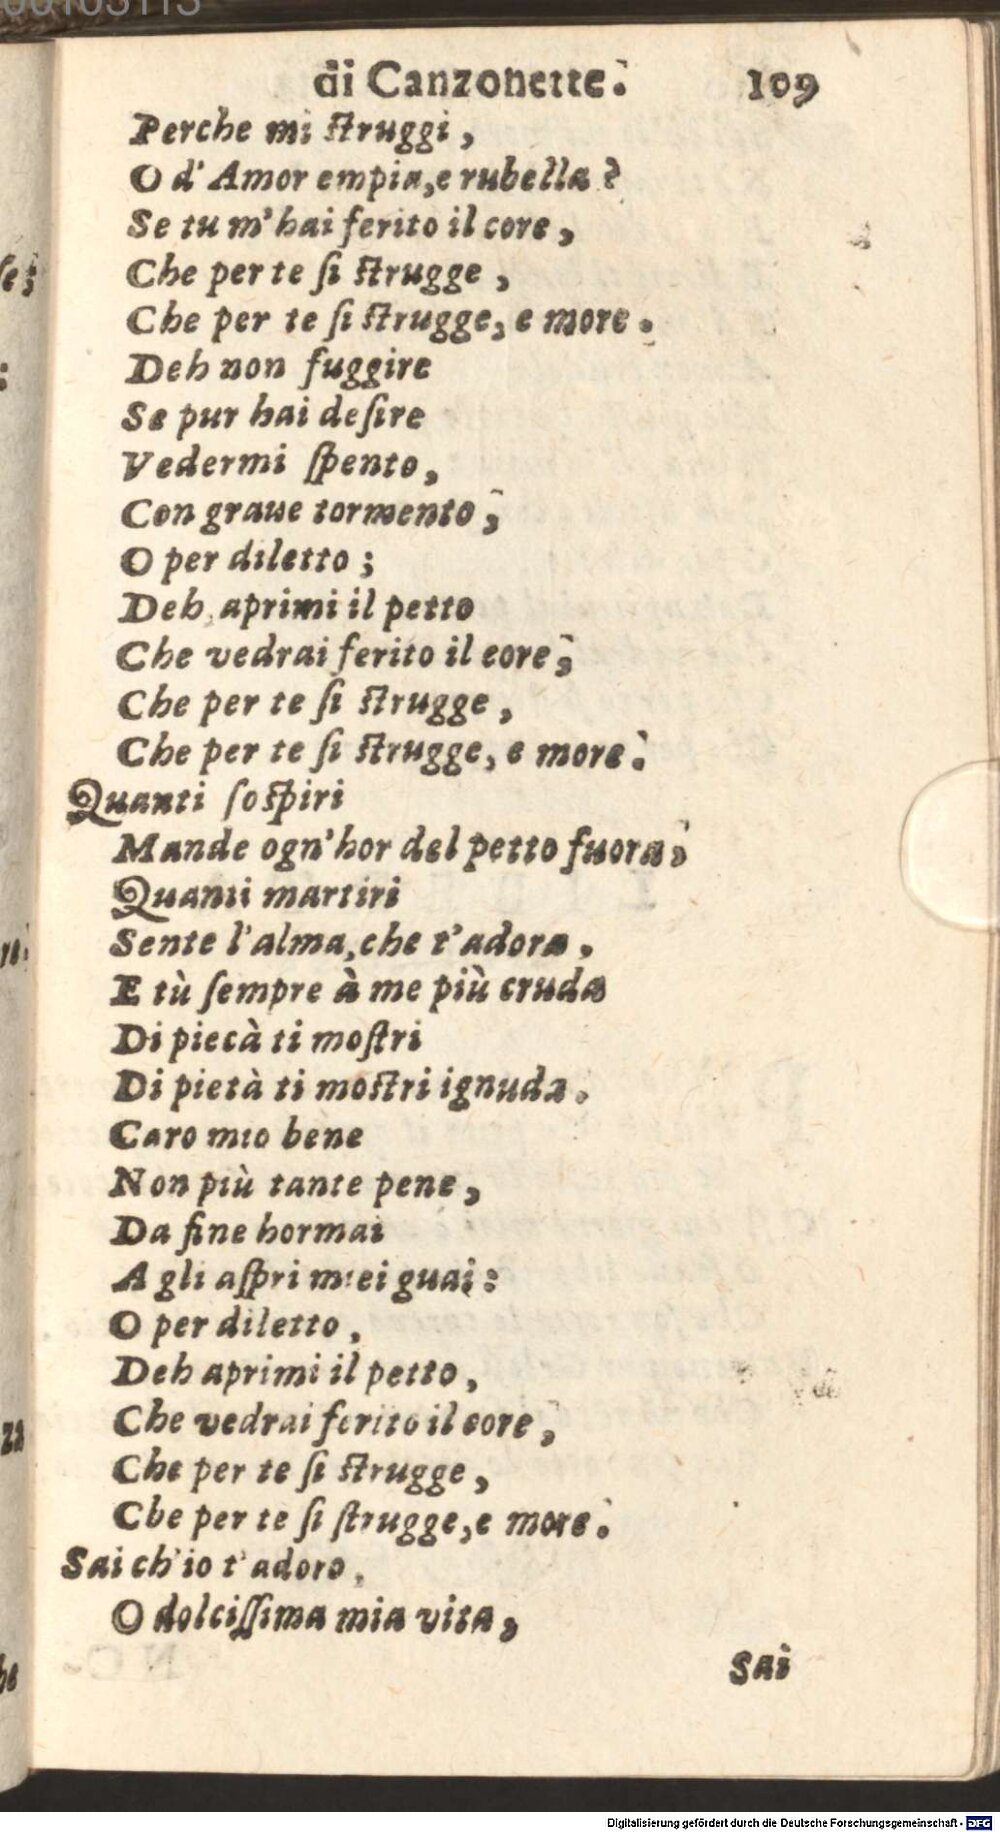 di Canzonette.
109
Perche mi ſtruggi,
O d' Amor empia, e rubella?
Se tu m'hai ferito il core,
Che per te ſi ſtrugge,
Che per te ſi ſtrugge, e more.
Deh non fuggire
Se pur hai deſire
Vedermi ſpento,
Con graue tormento,
O per diletto;
Deh aprimi il petto
Che vedrai ferito il core,
Che per te ſi ſtrugge,
Che per te ſi ſtrugge, e more.
Quanti ſoſpiri
Mande ogn'hor del petto fuora,
Quanti martiri
Sente l'alma, che t'adora.
E tù ſempre à me più cruda
Di piecà ti moſtri
Di pietà ti moſtri ignuda.
Caro mio bene
Non più tante pene,
Da fine hormai
A gli aſpri miei guai:
O per diletto,
Deh aprimi il petto,
Che vedrai ferito il core,
Che per te ſi ſtrugge,
Che per te ſi ſtrugge, e more.
Sai ch'io t'adoro,
O dolciſſima mia vita,
Sai
Digitalisierung gefördert durch die Deutsche Forschungsgemeinschaft - DFG